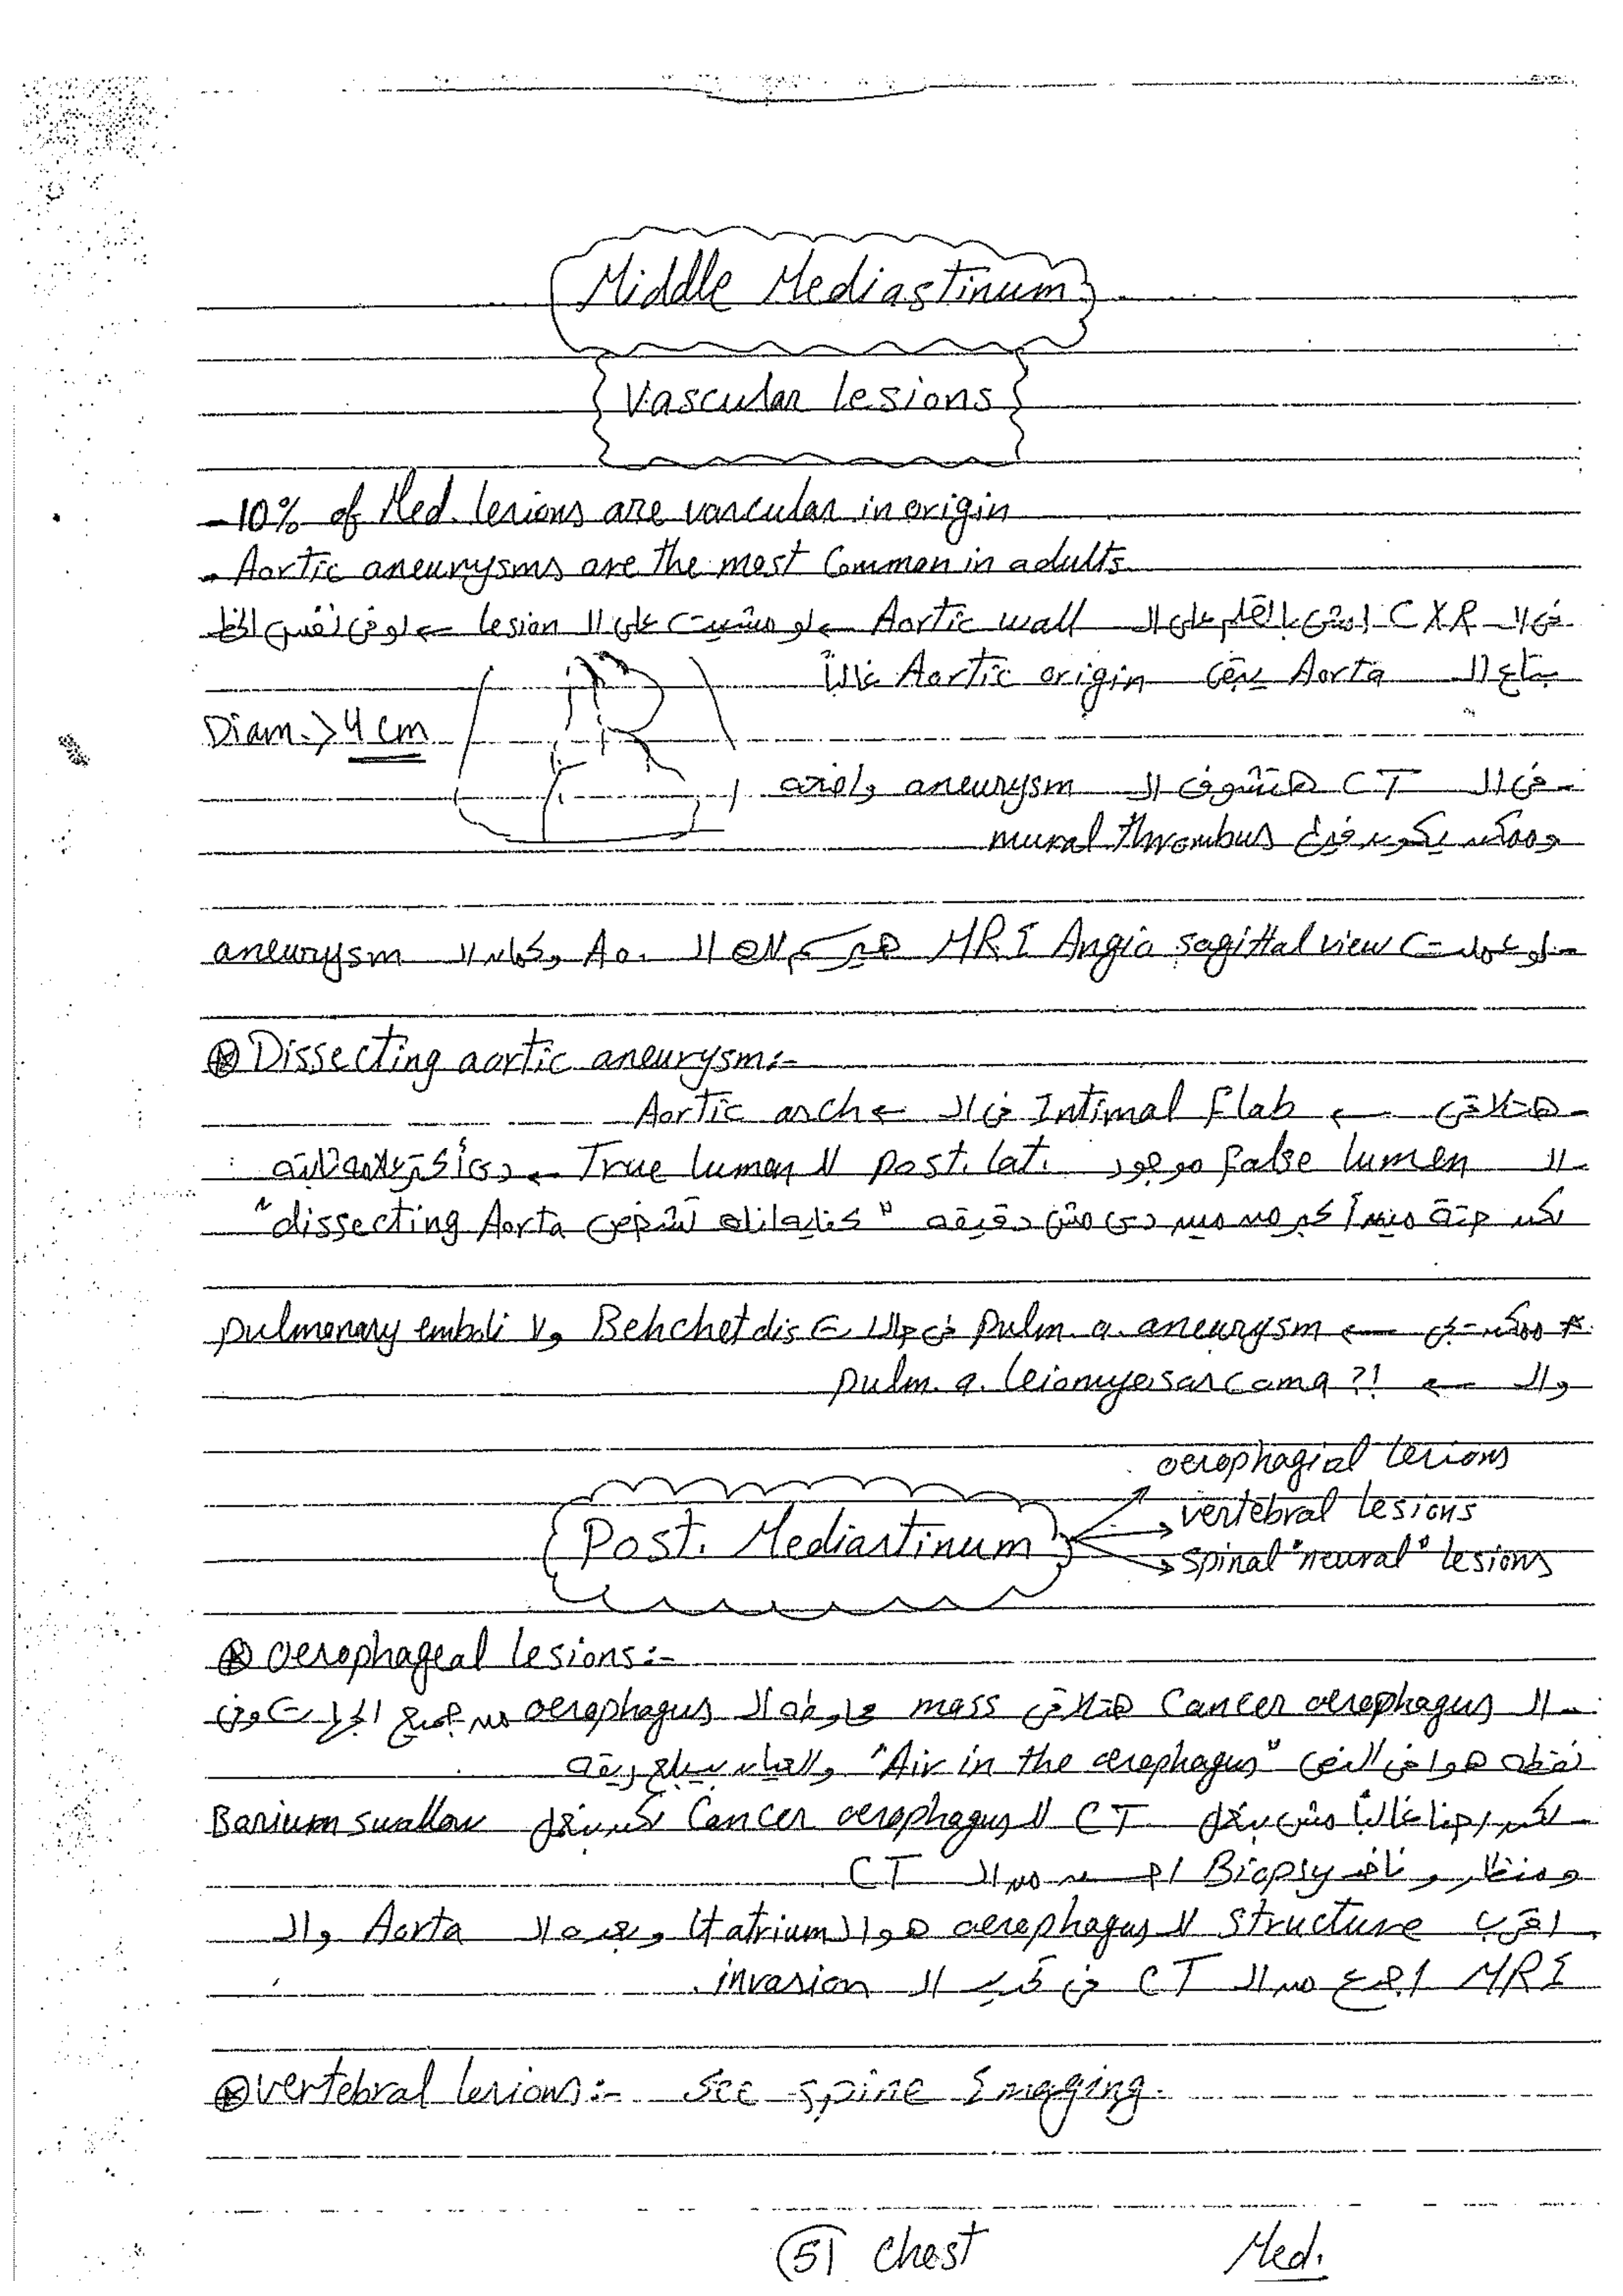 Middle Mediastinum
Vascular lesions
- 10% of Med. lesions are vascular in origin
- Aortic aneurysms are the most Common in adults
في الـ CXR امشي بالقلم على الـ Aortic wall ← لو مشيت على الـ lesion ← لو في نفس الخط
بتاع الـ Aorta يبقى Aortic origin غالباً
Diam. > 4 cm
- في الـ CT هتشوف الـ aneurysm واضحه
وممكن يكون فيها mural thrombus
- لو عملت MRI Angio sagittal view الـ Ao. وكمان الـ aneurysm
⊛ Dissecting aortic aneurysm:-
- هتلاقى ← Intimal flab في الـ ← Aortic arch
- الـ false lumen موجود post. lat. لـ True lumen ←
لكن حتة مين أكبر من مين دى مش دقيقه " تشخص dissecting Aorta"
* ← pulm. a. aneurysm في حالات Behchet dis و pulmonary emboli
والـ ← pulm. a. leiomyosarcoma ?!
Post. Mediastinum
oesophagial lesions
vertebral lesions
spinal "neural" lesions
⊛ oesophageal lesions:-
- الـ Cancer oesophagus هتلاقى mass حاوطه الـ oesophagus من جميع الجهات وفي
نقطه هوا في النص "Air in the oesophagus" والعيان بيبلع ريقه
- لكن احنا غالباً مش بنعمل CT لـ Cancer oesophagus لكن بنعمل Barium swallow
ومنظار وناخد Biopsy احسن من الـ CT
- اقرب structure لـ oesophagus هو الـ Lt atrium وبعده الـ Aorta والـ
MRI من الـ CT في الـ invasion.
⊛ vertebral lesions:- See spine Imaging.
51 Chest Med.